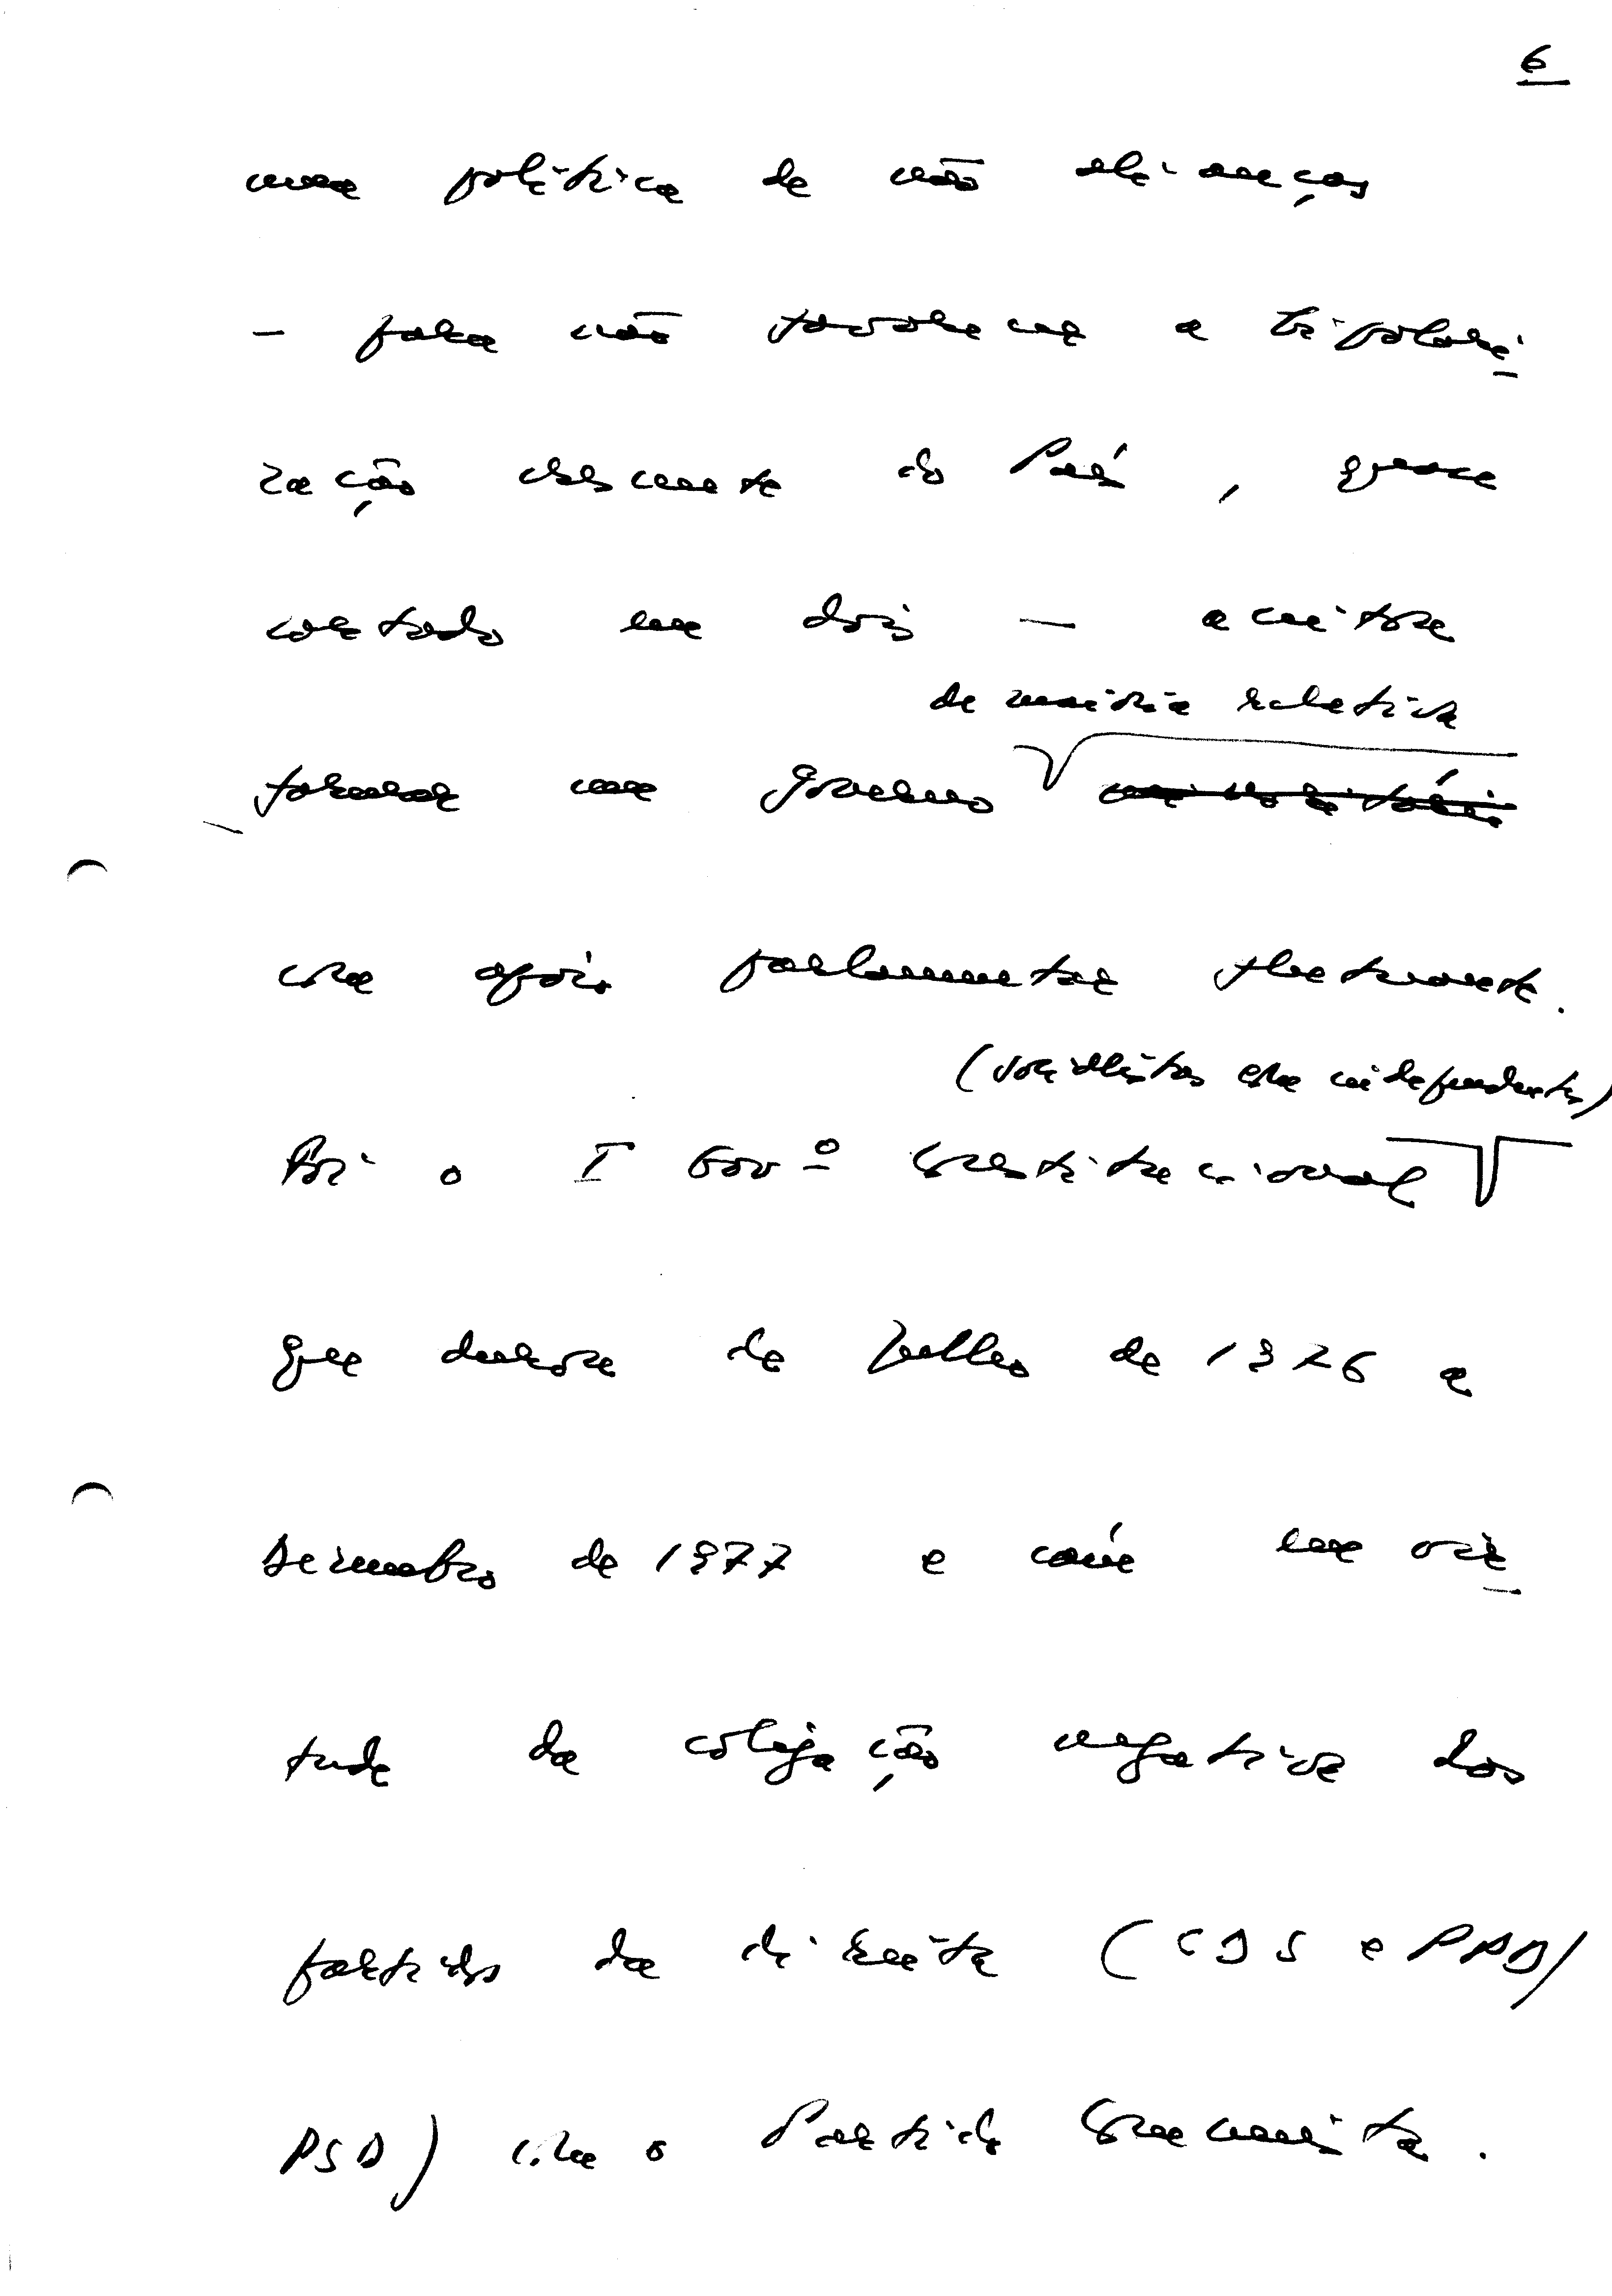 6
uma política de não alianças
- para não favorecer a bipolari-
zação crescente do País, quase
cortado em dois - aceitou
de maioria relativa
formar um governo minoritário
com apoio parlamentar flutuante.
(socialistas com independentes)
Foi o I Govº Constitucional
que durou de Julho de 1976 a
Dezembro de 1977 e caíu em vir-
tude da coligação negativa dos
partidos da direita (CDS e PPD/
PSD) com o Partido Comunista.